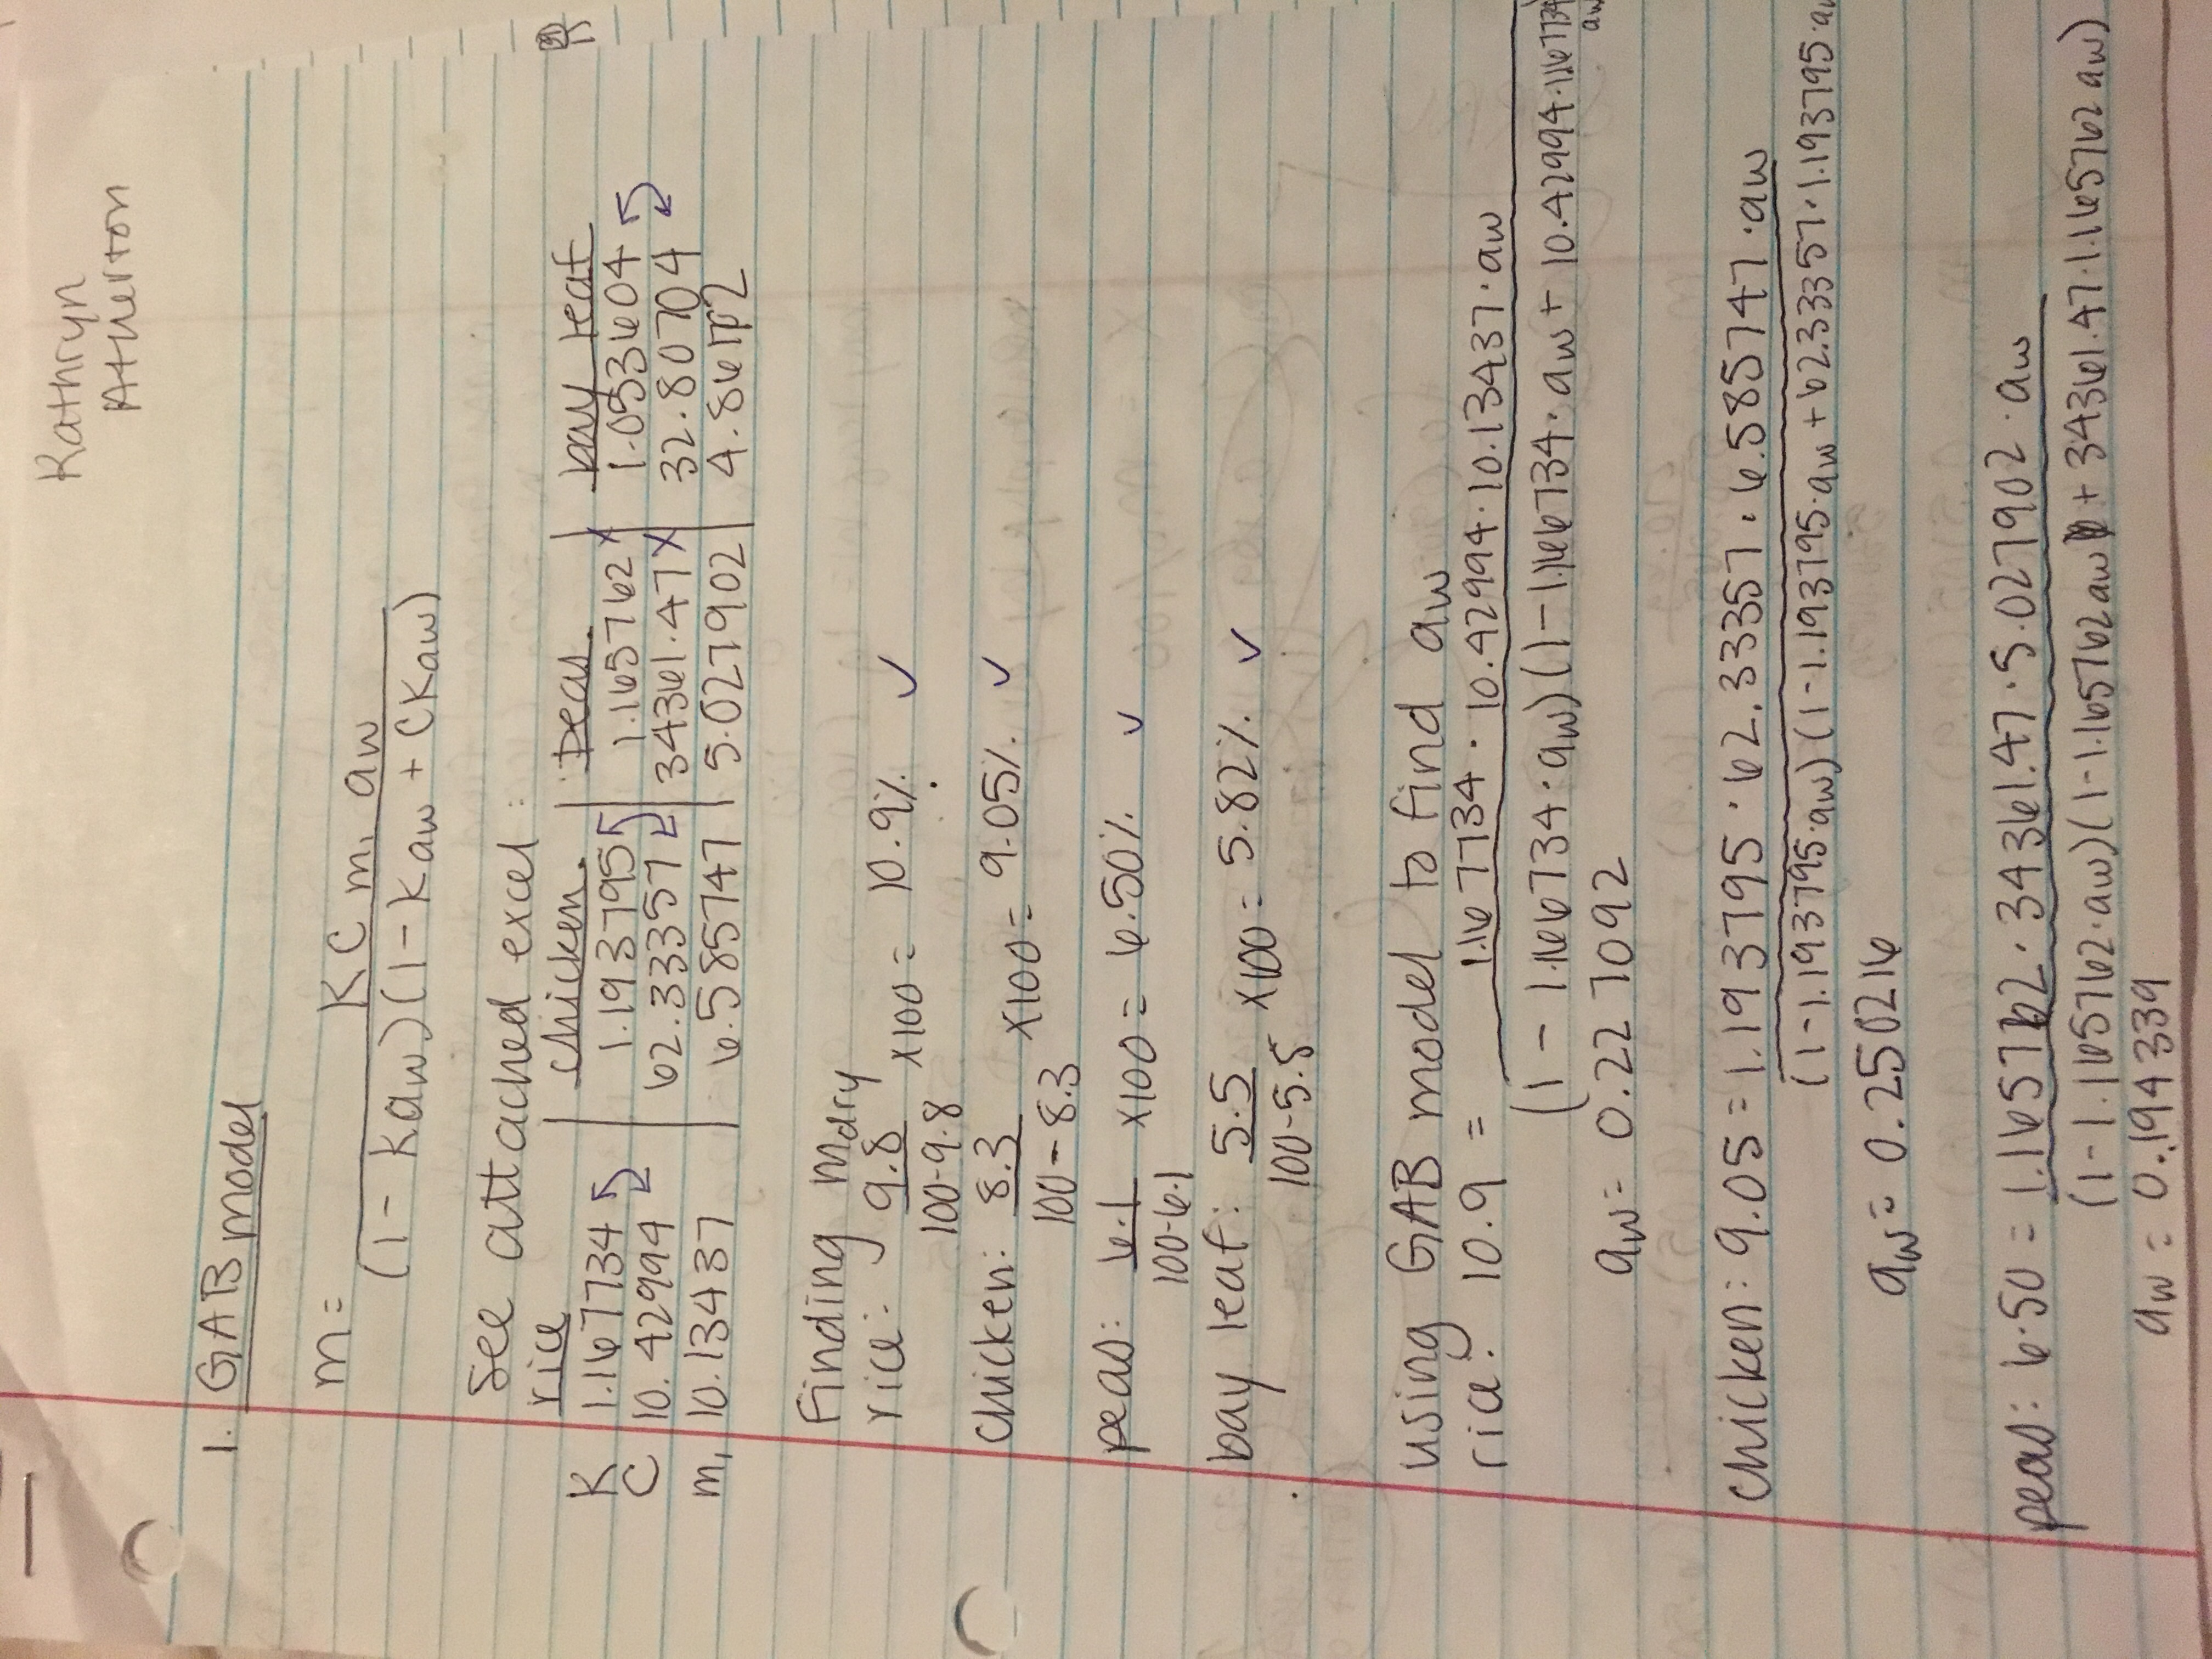 Kathryn
Atherton
1. GAB model
m = K C m₁ aw
(1 - Kaw)(1 - Kaw + CKaw)
see attached excel:
rice | chicken | peas | bay leaf
K 1.167734 | 1.193795 | 1.165762 x | 1.053604
C 10.42994 | 62.33357 | 34361.47 x | 32.80704
m₁ 10.13437 | 6.585747 | 5.027902 |
Finding mdry
rice: 9.8 / 100-9.8 x100 = 10.9% ✓
chicken: 8.3 / 100-8.3 x100 = 9.05% ✓
peas: 6.1 / 100-6.1 x100 = 6.50% ✓
bay leaf: 5.5 / 100-5.5 x100 = 5.82% ✓
using GAB model to find aw
rice: 10.9 = 1.167734 · 10.42994 · 10.13437 · aw
(1 - 1.166734 · aw)(1 - 1.166734 · aw + 10.42994 · 1.167734
aw
aw = 0.227092
chicken: 9.05 = 1.193795 · 62.33357 · 6.585747 · aw
(1 - 1.193795 · aw)(1 - 1.193795 · aw + 62.33357 · 1.193795 · aw
aw = 0.250216
peas: 6.50 = 1.165762 · 34361.47 · 5.027902 · aw
(1 - 1.165762 · aw)(1 - 1.165762 aw + 34361.47 · 1.165762 aw)
aw = 0.194339